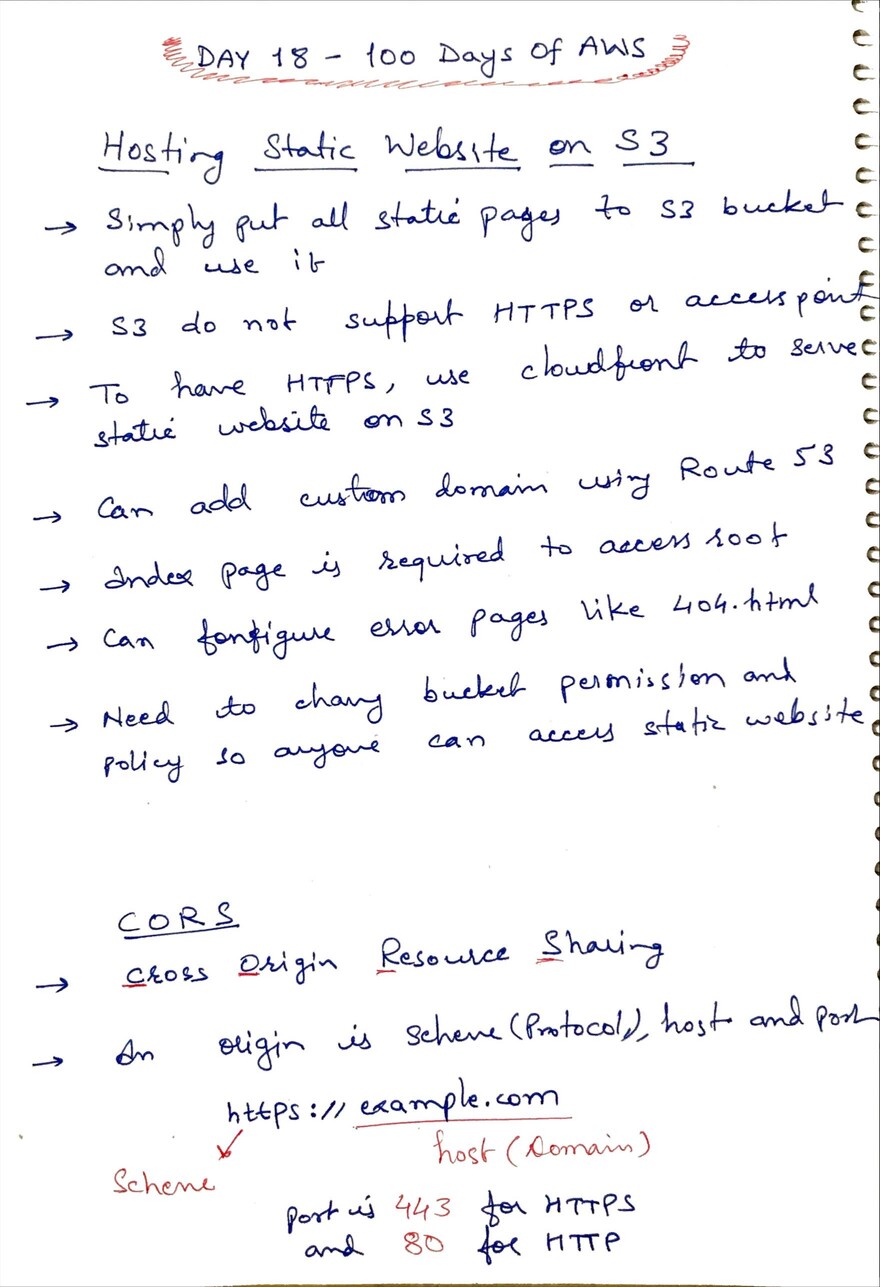 DAY 18 - 100 Days Of AWS
Hosting Static Website on S3
→ Simply put all static pages to S3 bucket
and use it
→ S3 do not support HTTPS or access point
→ To have HTTPS, use cloudfront to serve
static website on S3
→ Can add custom domain using Route 53
→ Index page is required to access root
→ Can configure error pages like 404.html
→ Need to chang bucket permission and
policy so anyone can access static website
CORS
→ Cross Origin Resource Sharing
→ An origin is scheme (Protocol), host and port
https:// example.com
host (Domain)
Scheme
port is 443 for HTTPS
and 80 for HTTP